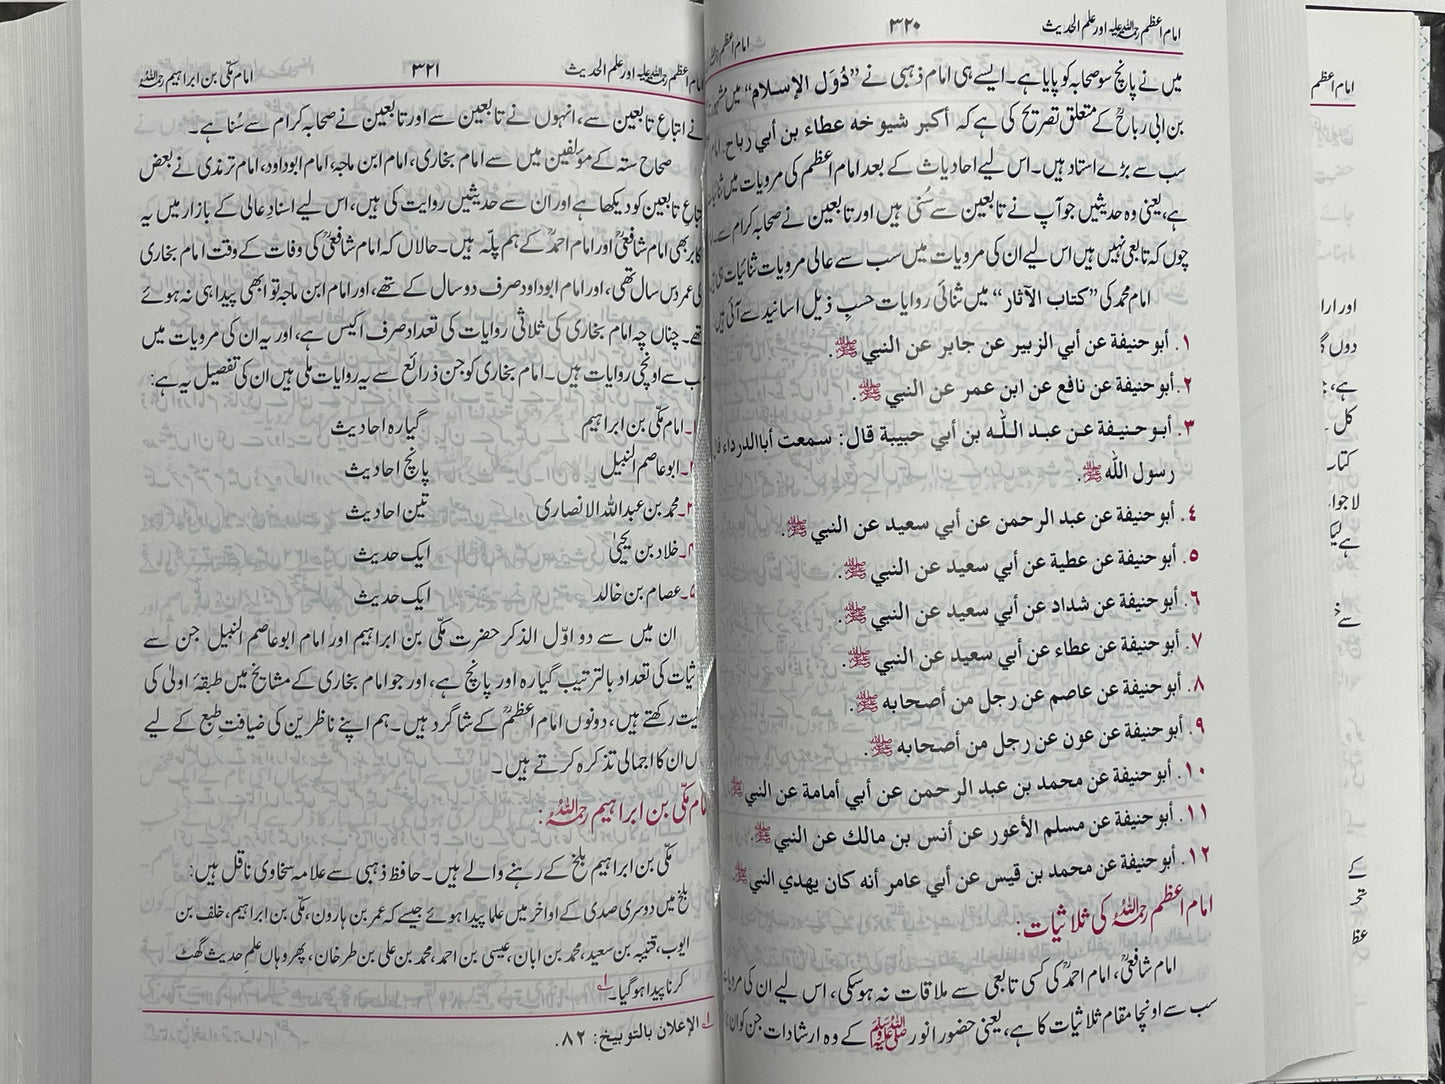 امام اعظم رحمۃ اللہ علیہ اور علم الحدیث ۳۲۰
میں نے پانچ سو صحابہ کو پایا ہے۔ ایسے ہی امام ذہبی نے ”دُوَل الإسلام“ میں
بن ابی رباحؒ کے متعلق تصریح کی ہے کہ أکبر شیوخه عطاء بن أبي رباح.
سب سے بڑے استاد ہیں۔ اس لیے احادیات کے بعد امام اعظم کی مرویات میں
ہے، یعنی وہ حدیثیں جو آپ نے تابعین سے سُنی ہیں اور تابعین نے صحابہ کرام سے۔
چوں کہ تابعی نہیں ہیں اس لیے ان کی مرویات میں سب سے عالی مرویات ثنائیات ہی
امام محمد کی ”کتاب الآثار“ میں ثنائی روایات حسبِ ذیل اسانید سے آئی ہیں
۱. أبو حنیفة عن أبي الزبیر عن جابر عن النبي ﷺ.
۲. أبو حنیفة عن نافع عن ابن عمر عن النبي ﷺ.
۳. أبو حنیفة عن عبد اللّٰه بن أبي حبیبة قال: سمعت أبا الدرداء
رسول اللّٰه ﷺ.
٤. أبو حنیفة عن عبد الرحمن عن أبي سعید عن النبي ﷺ.
٥. أبو حنیفة عن عطیة عن أبي سعید عن النبي ﷺ.
٦. أبو حنیفة عن شداد عن أبي سعید عن النبي ﷺ.
۷. أبو حنیفة عن عطاء عن أبي سعید عن النبي ﷺ.
۸. أبو حنیفة عن عاصم عن رجل من أصحابه ﷺ.
۹. أبو حنیفة عن عون عن رجل من أصحابه ﷺ.
۱۰. أبو حنیفة عن محمد بن عبد الرحمن عن أبي أمامة عن النبي ﷺ
۱۱. أبو حنیفة عن مسلم الأعور عن أنس بن مالك عن النبي ﷺ.
۱۲. أبو حنیفة عن محمد بن قیس عن أبي عامر أنه کان یهدي النبي ﷺ.
امام اعظم رحمہ اللہ کی ثلاثیات:
امام شافعیؒ، امام احمدؒ کی کسی تابعی سے ملاقات نہ ہو سکی، اس لیے ان کی
سب سے اونچا مقام ثلاثیات کا ہے، یعنی حضور انور ﷺ کے وہ ارشادات جن کو
امام اعظم رحمۃ اللہ علیہ اور علم الحدیث ۳۲۱ امام مکّی بن ابراہیم رحمہ اللہ
نے اتباعِ تابعین سے، انہوں نے تابعین سے اور تابعین نے صحابہ کرام سے سُنا ہے۔
صحاح ستہ کے مؤلفین میں سے امام بخاری، امام ابن ماجہ، امام ابوداود، امام ترمذی نے بعض
تابعین کو دیکھا ہے اور ان سے حدیثیں روایت کی ہیں، اس لیے اسناد عالی کے بازار میں یہ
بھی امام شافعیؒ اور امام احمدؒ کے ہم پلّہ ہیں۔ حالاں کہ امام شافعیؒ کی وفات کے وقت امام بخاری
کی عمر دس سال تھی، اور امام ابوداود صرف دو سال کے تھے، اور امام ابن ماجہ تو ابھی پیدا ہی نہ ہوئے
تھے۔ چناں چہ امام بخاری کی ثلاثی روایات کی تعداد صرف اکیس ہے، اور یہ ان کی مرویات میں
سب سے اونچی روایات ہیں۔ امام بخاری کو جن ذرائع سے یہ روایات ملی ہیں ان کی تفصیل یہ ہے:
امام مکّی بن ابراہیم گیارہ احادیث
ابو عاصم النبیل پانچ احادیث
محمد بن عبد اللہ الانصاری تین احادیث
خلاد بن یحییٰ ایک حدیث
عصام بن خالد ایک حدیث
ان میں سے دو اوّل الذکر حضرت مکّی بن ابراہیم اور امام ابو عاصم النبیل جن سے
کی تعداد بالترتیب گیارہ اور پانچ ہے، اور جو امام بخاری کے مشایخ میں طبقۂ اولیٰ کی
رکھتے ہیں، دونوں امام اعظمؒ کے شاگرد ہیں۔ ہم اپنے ناظرین کی ضیافتِ طبع کے لیے
ان کا اجمالی تذکرہ کرتے ہیں۔
امام مکّی بن ابراہیم رحمہ اللہ:
مکّی بن ابراہیم بلخ کے رہنے والے ہیں۔ حافظ ذہبی سے علامہ سخاوی ناقل ہیں:
بلخ میں دوسری صدی کے اواخر میں علما پیدا ہوئے جیسے کہ عمر بن ہارون، مکّی بن ابراہیم، خلف بن
ایوب، قتیبہ بن سعید، محمد بن ابان، عیسیٰ بن احمد، محمد بن علی بن طرخان، پھر وہاں علمِ حدیث گھٹ
کرنا پیدا ہو گیا۔ لے
لے الإعلان بالتوبیخ: ۸۲.